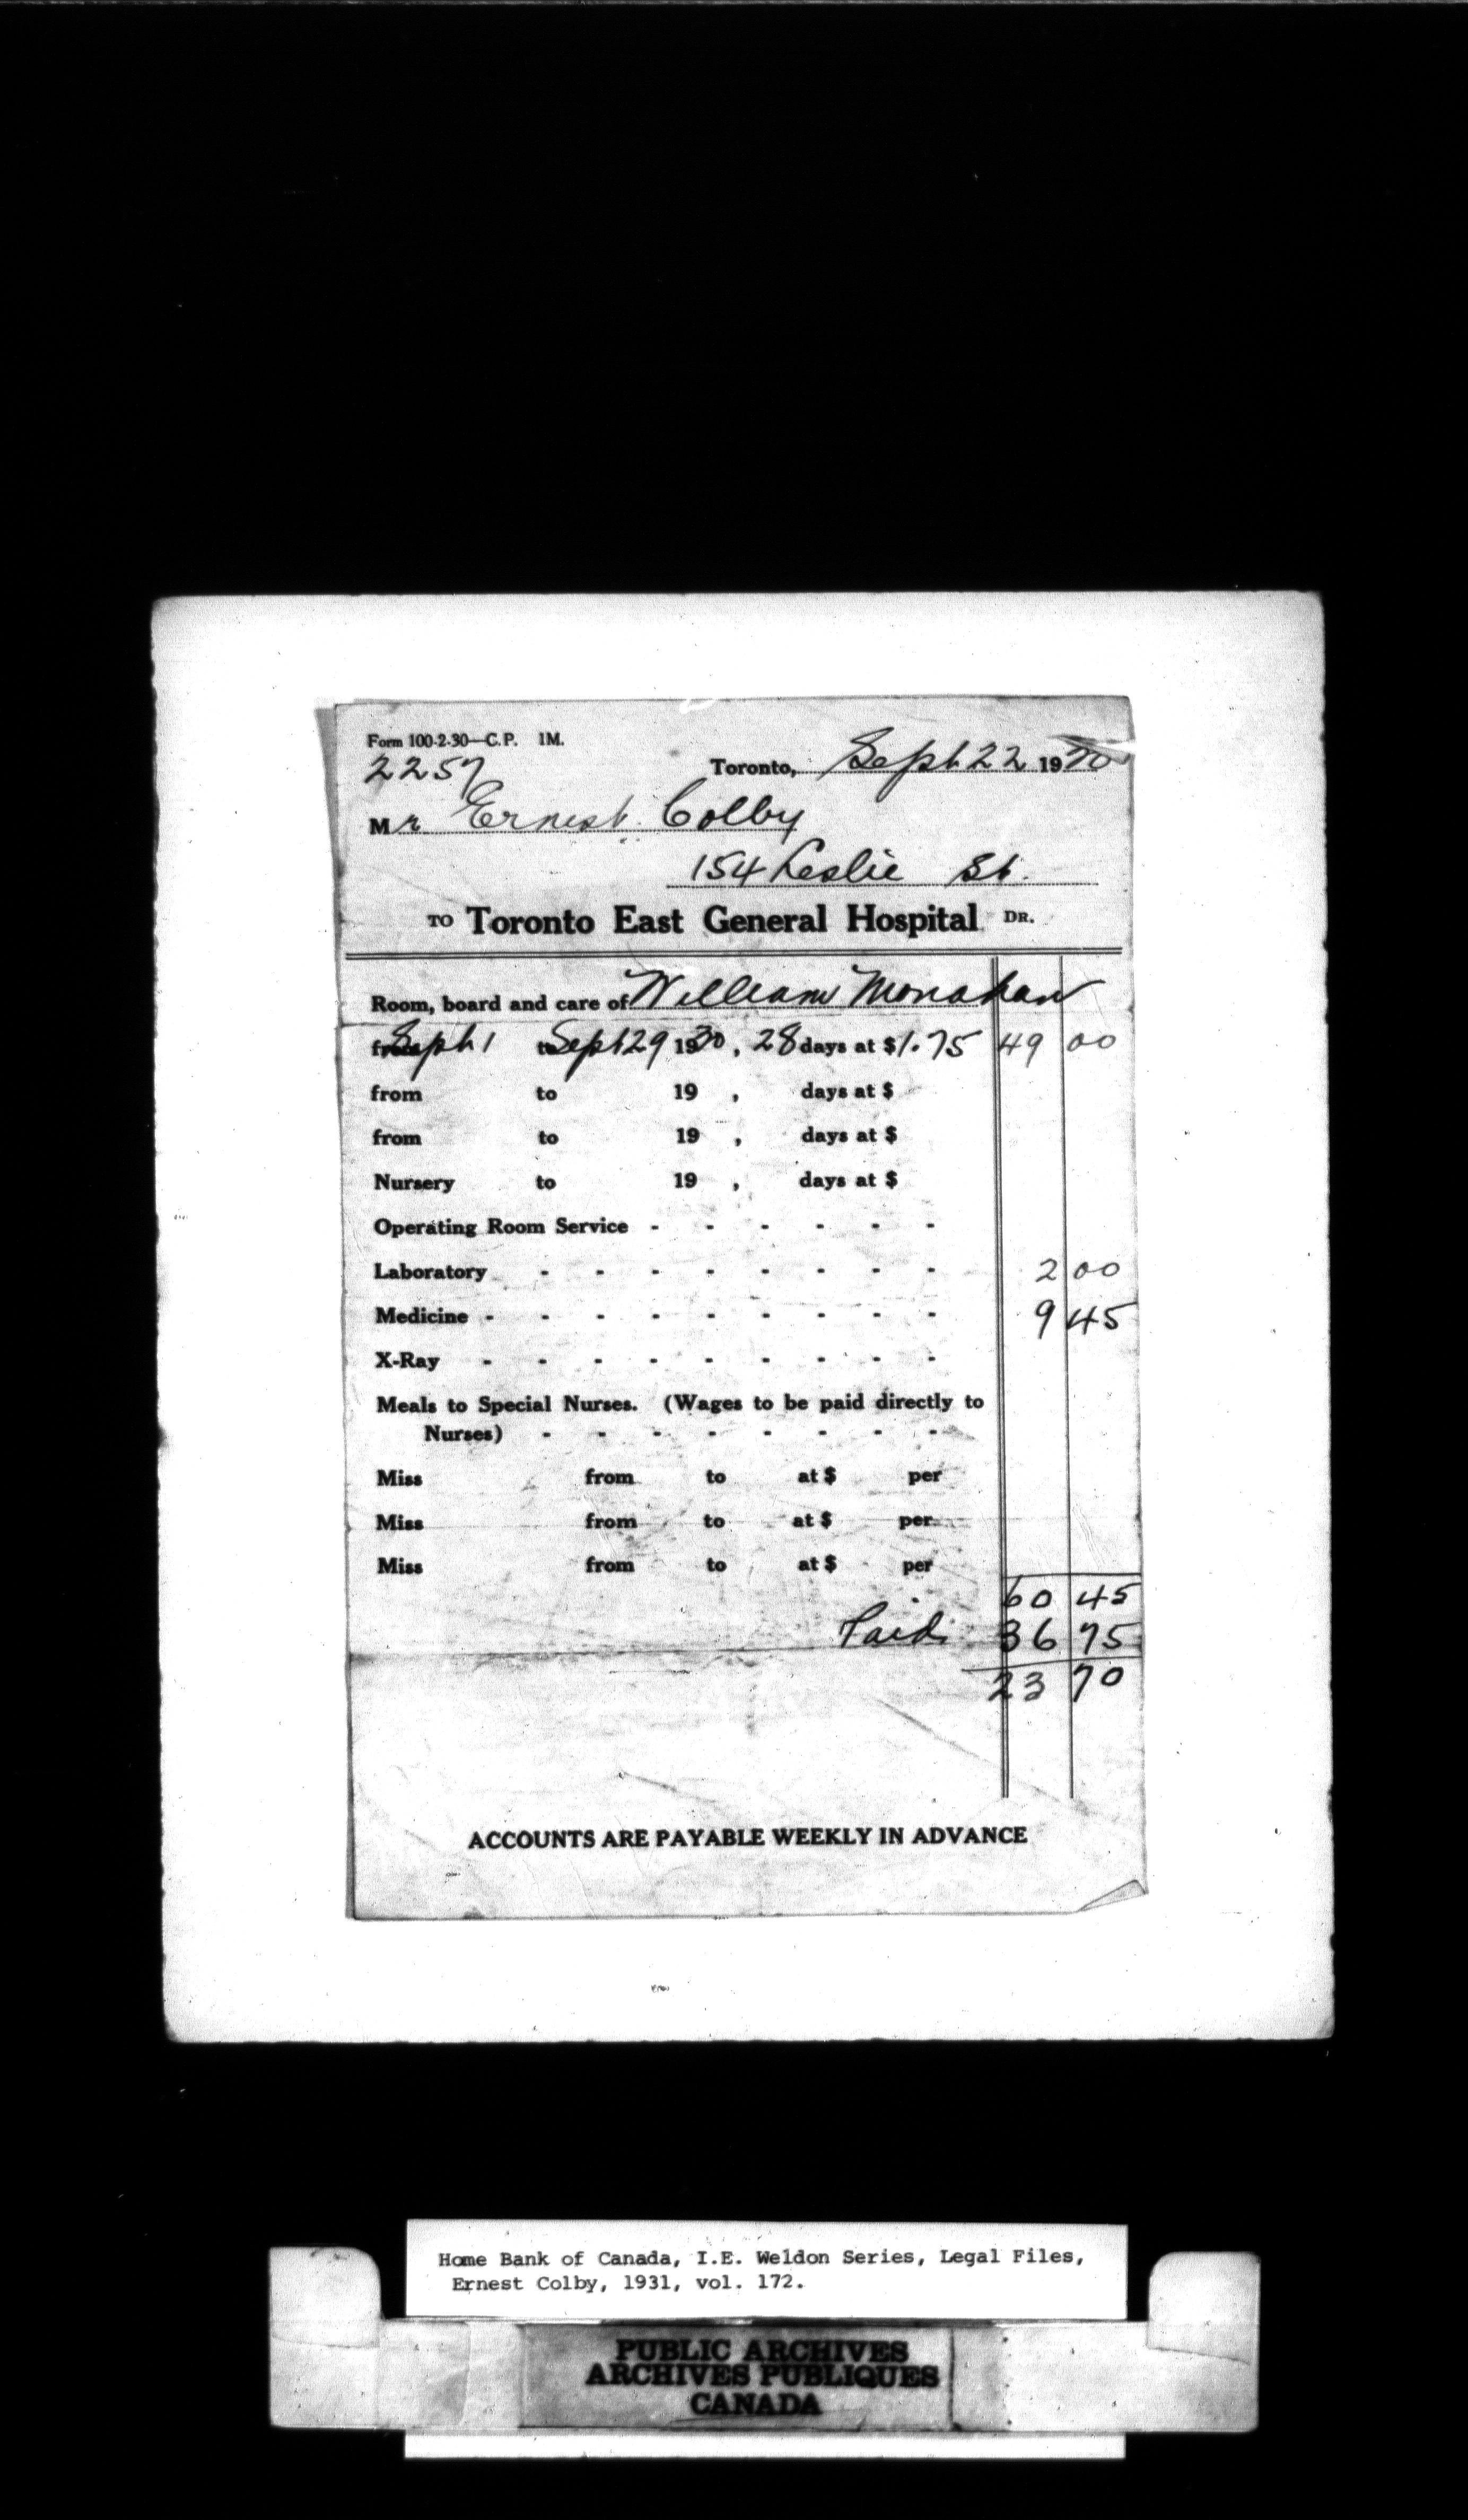 Form 100-2-30—C.P. 1M.
2257
Toronto, Sept 22 1930
Mr Ernest Colby
154 Leslie St.
TO Toronto East General Hospital DR.
Room, board and care of William Monahan
from Sept 1 to Sept 29 1930, 28 days at $1.75 49 00
from to 19 , days at $
from to 19 , days at $
Nursery to 19 , days at $
Operating Room Service - - - - - -
Laboratory - - - - - - - - 2 00
Medicine - - - - - - - - - 9 45
X-Ray - - - - - - - - -
Meals to Special Nurses. (Wages to be paid directly to
Nurses) - - - - - - - -
Miss from to at $ per
Miss from to at $ per
Miss from to at $ per
60 45
Paid 36 75
23 70
ACCOUNTS ARE PAYABLE WEEKLY IN ADVANCE
Home Bank of Canada, I.E. Weldon Series, Legal Files,
Ernest Colby, 1931, vol. 172.
PUBLIC ARCHIVES
ARCHIVES PUBLIQUES
CANADA